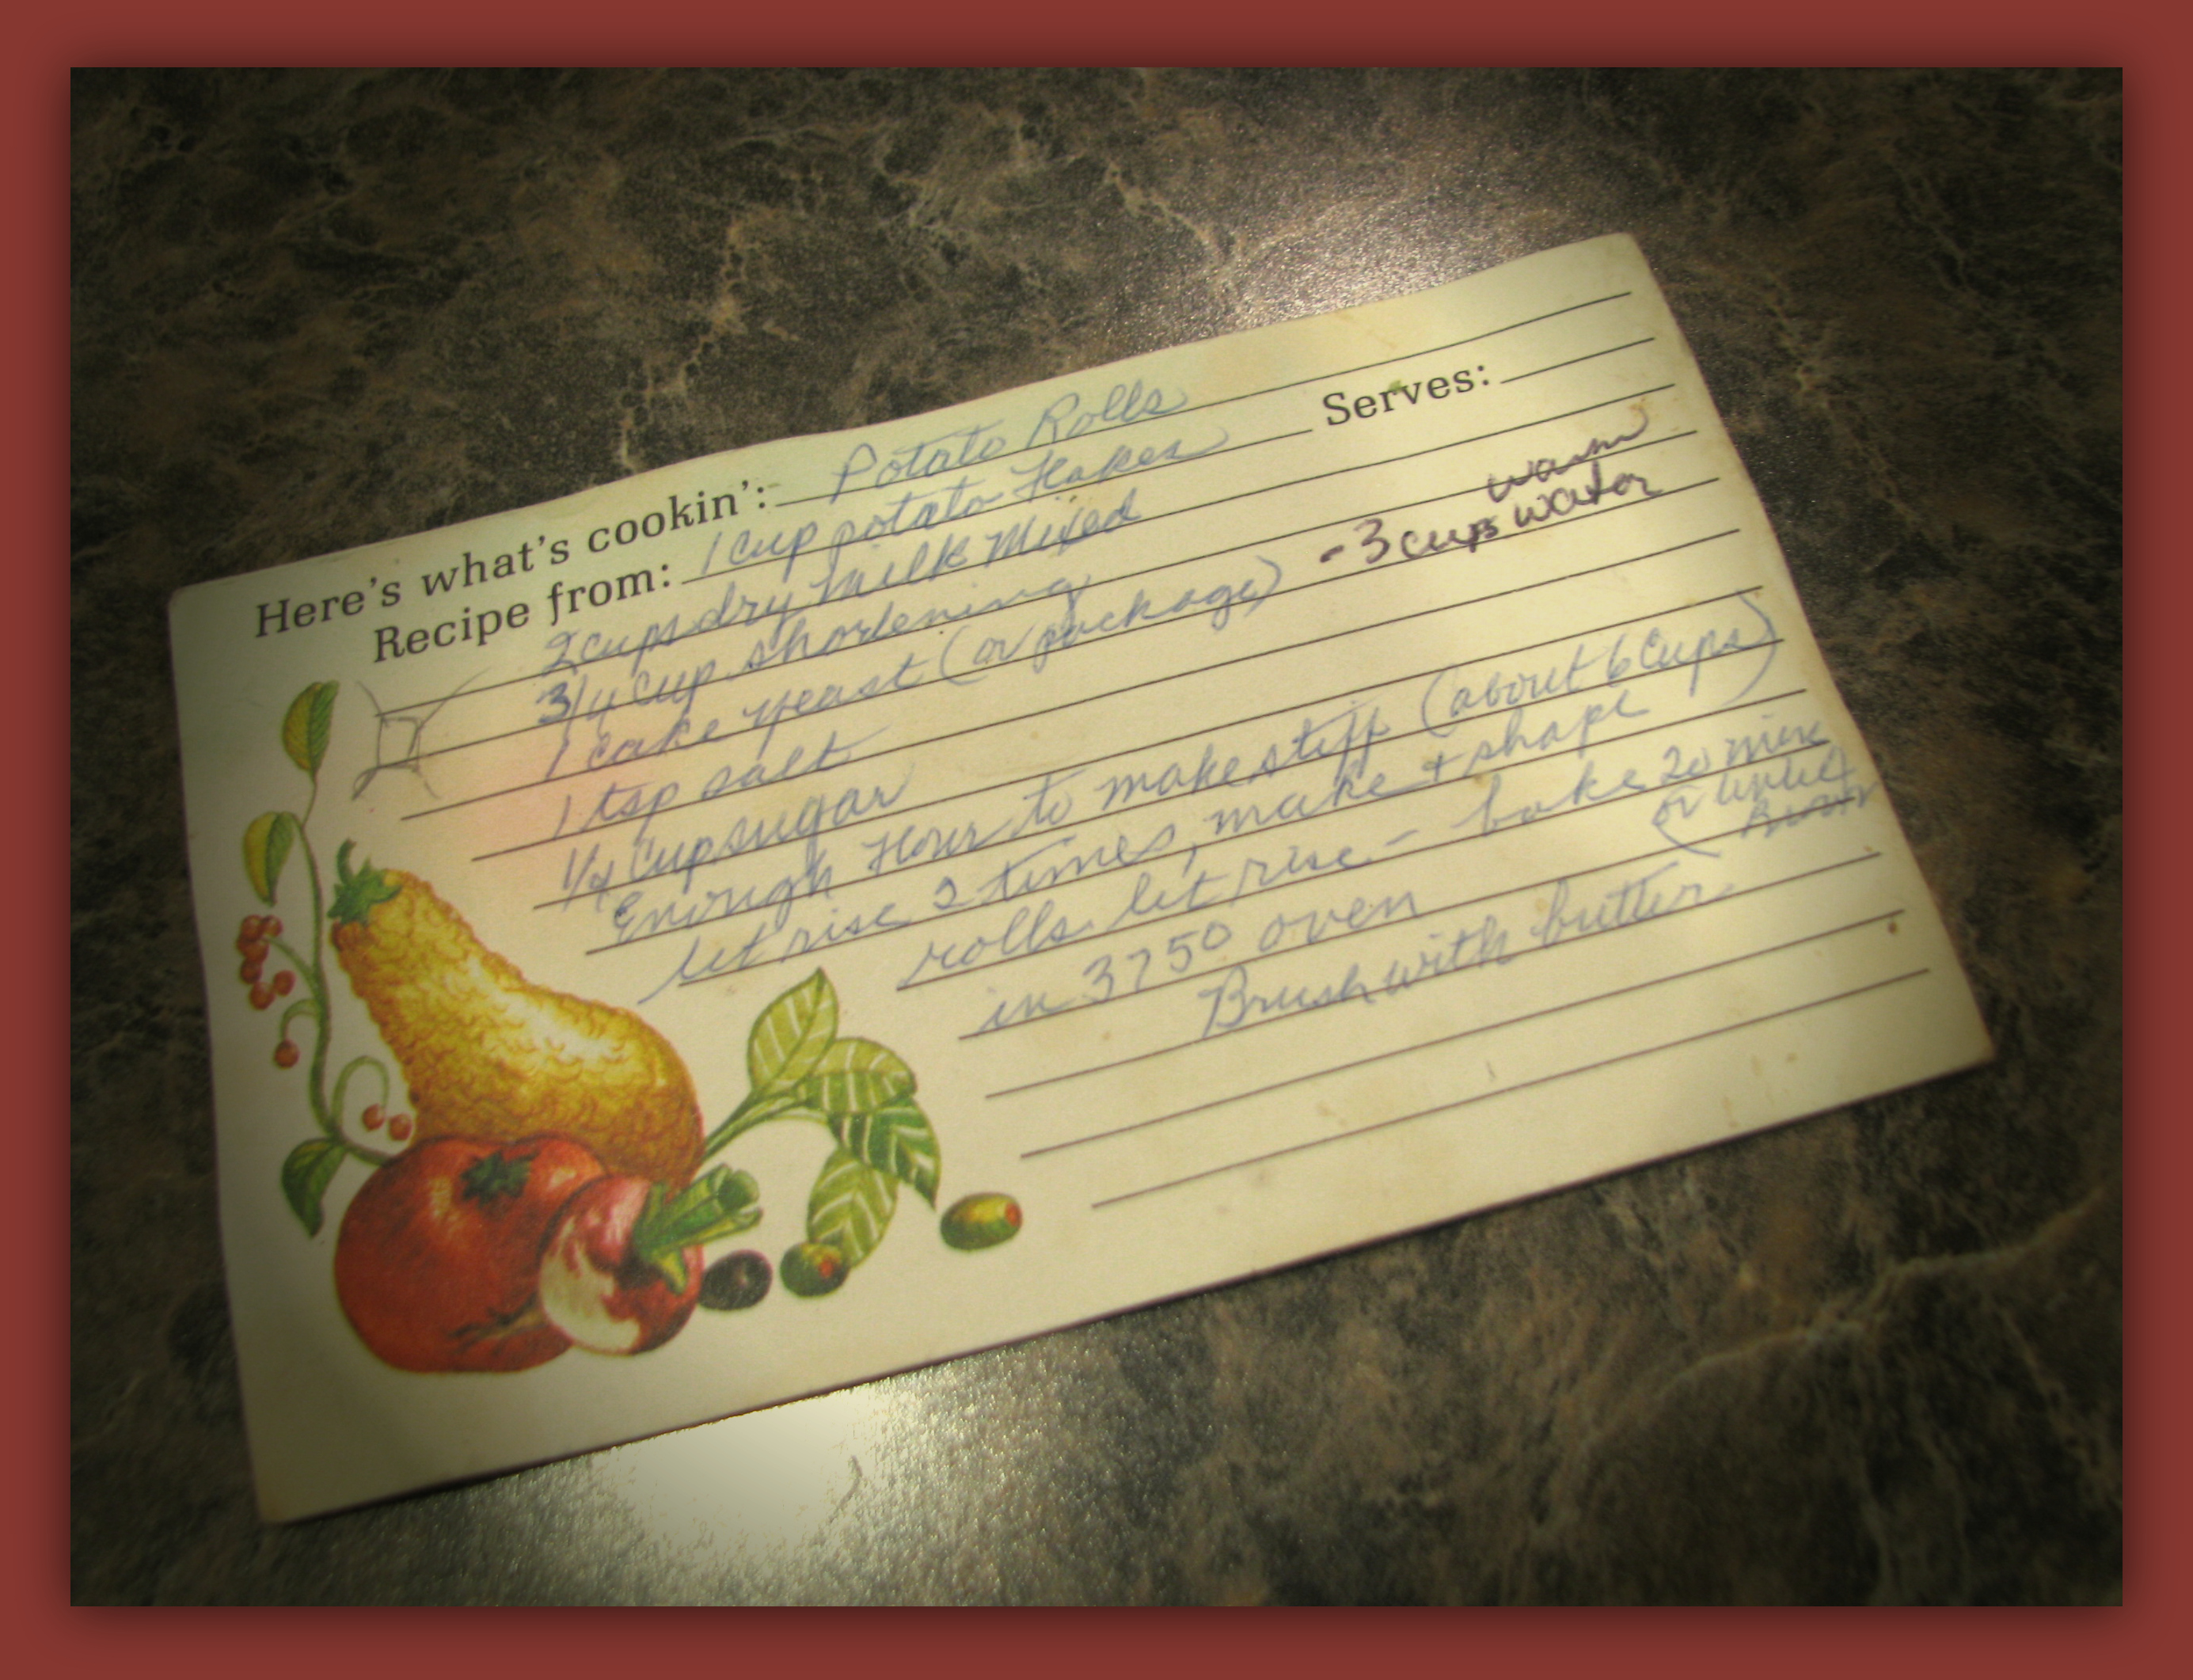 Here's what's cookin': Potato Rolls
Recipe from: 1 cup potato flakes Serves:
2 cups dry milk Mixed
3/4 cup shortening
1 cake yeast (or package) - 3 cups warm water
1 tsp salt
1/4 cup sugar
Enough flour to make stiff (about 6 cups)
let rise 2 times, make + shape
rolls let rise - bake 20 min
in 375° oven (or until Brown
Brush with butter